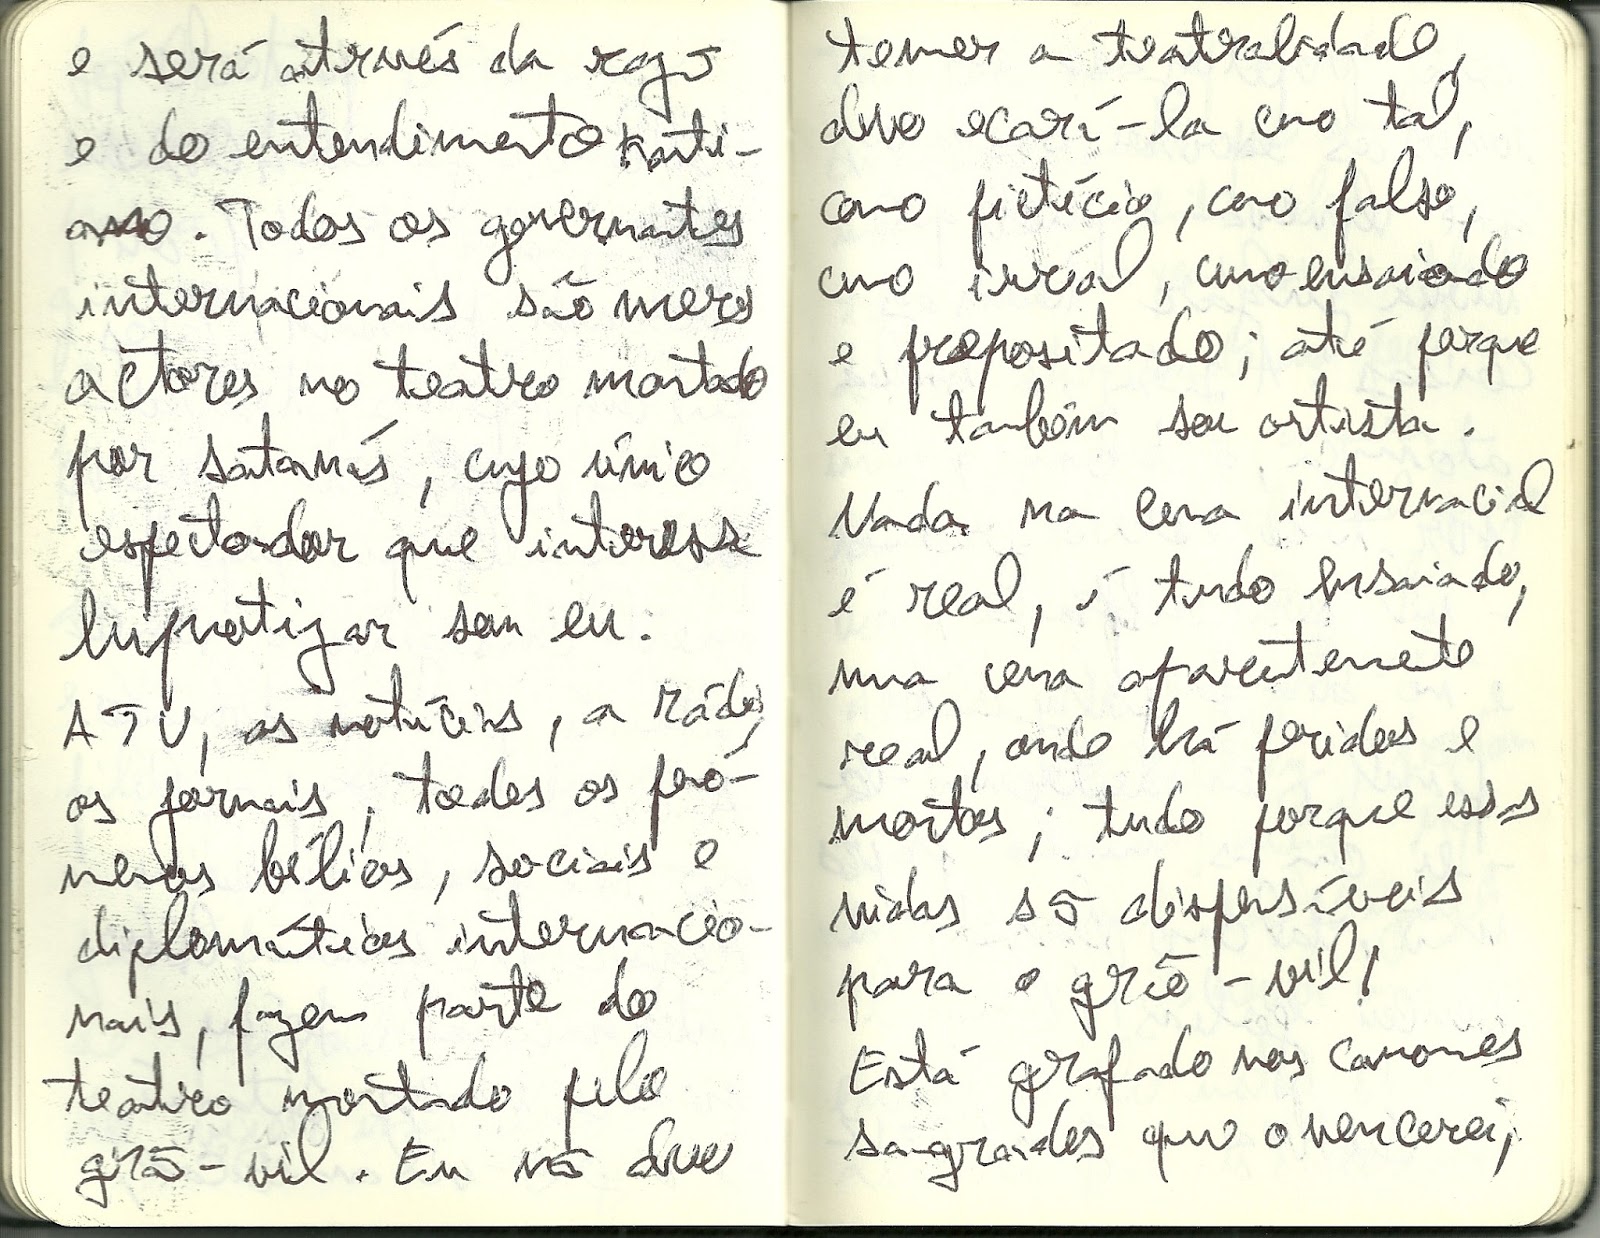 e será através da razõ
e do entendimento Kanti-
ano. Todos os governantes
internacionais são meros
actores no teatro montado
por satanás, cujo único
espectador que interessa
hipnotizar sou eu.
A TV, as notícias, a rádio,
os jornais, todos os fenó-
menos bélicos, sociais e
diplomáticos internacio-
nais, fazem parte do
teatro montado pelo
grão-vil. Eu nõ devo
temer a teatralidade,
devo encará-la como tal,
como fictício, como falso,
como irreal, como ensaiado
e propositado; até porque
eu também sou artista.
Nada na cena internacional
é real, é tudo ensaiado,
numa cena aparentemente
real, onde há feridos e
mortos; tudo porque essas
vidas sõ dispensáveis
para o grão-vil!
Está grafado nos canones
sagrados que o vencerei;